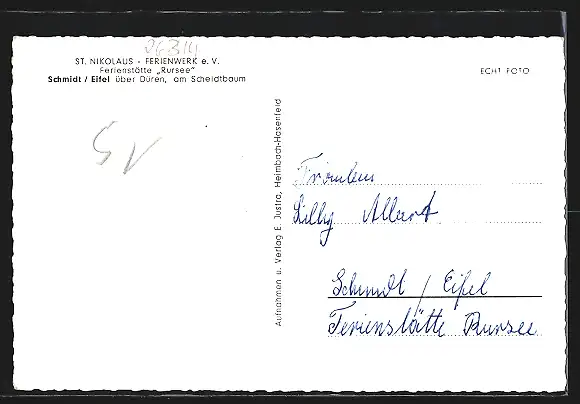 26314
ST. NIKOLAUS - FERIENWERK e. V.
Ferienstätte „Rursee"
Schmidt / Eifel über Düren, am Scheidtbaum
ECHT FOTO
Aufnahmen u. Verlag E. Justra, Heimbach-Hasenfeld
Fräulein
Lilly Allert
Schmidt / Eifel
Ferienstätte Rursee